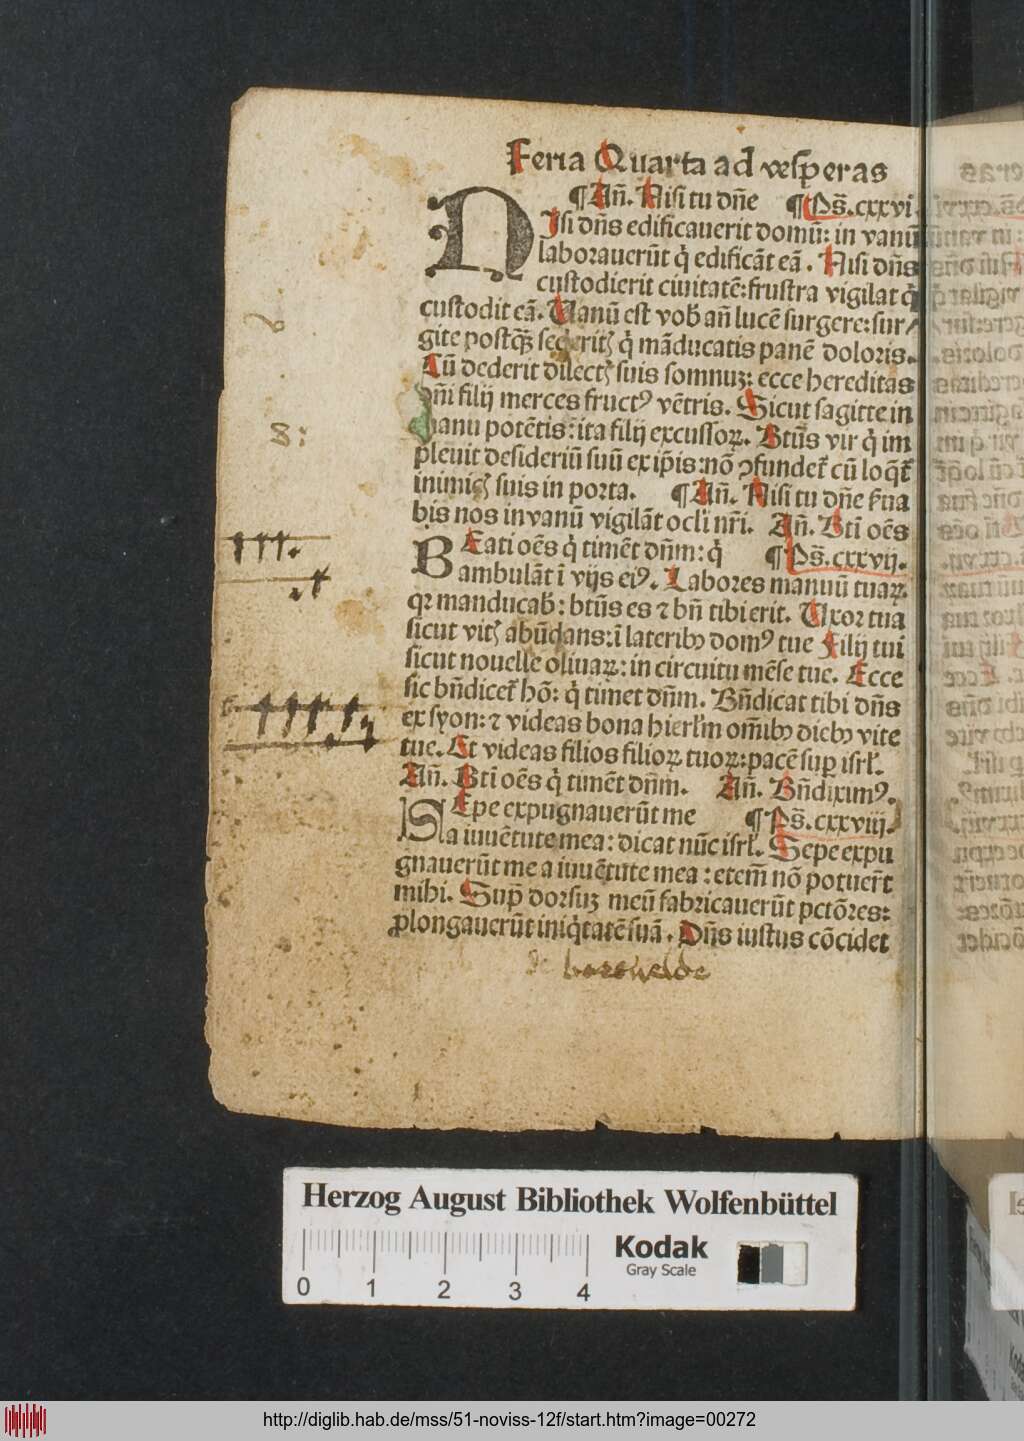 Feria Quarta ad vesꝑeras
¶ Añ. Nisi tu dñe ¶ Ps̄.cxxvi
NIsi dñs edificauerit domū: in vanū
laborauerūt q̇ edificāt eā. Nisi dñs
custodierit ciuitatē:frustra vigilat q̇
custodit eā. Vanū est vob̄ añ lucē surgere:sur/
gite postq̄ꝫ sederitꝭ q̇ māducatis panē doloris.
Cū dederit dilectꝭ suis somnuꝫ: ecce hereditas
dñi filij merces fructꝰ vētris. Sicut sagitte in
manu potētis: ita filij excussoꝝ. Btūs vir q̇ im
pleuit desideriū suū ex ip̄is:nō ꝯfundet᷑ cū loq̄t᷑
inimicꝭ suis in porta. ¶ Añ. Nisi tu dñe s̓ua
bis nos in vanū vigilāt ocl̓i nr̄i. Añ. Bti̅ oēs
BEati oēs q̇ timēt dñm: q̇ ¶ Ps̄.cxxvij.
ambulāt ī vijs eiꝰ. Labores manuū tuaꝝ
qꝛ manducab̄: btūs es ⁊ bñ tibi erit. Vxor tua
sicut vitꝭ abūdans:ī lateribꝫ domꝰ tue Filij tui
sicut nouelle oliuaꝝ: in circuitu mēse tue. Ecce
sic bñdicet᷑ hō: q̇ timet dñm. Bñdicat tibi dñs
ex syon: ⁊ videas bona hierl̓m om̄ibꝫ diebꝫ vite
tue. Et videas filios filioꝝ tuoꝝ:pacē suꝑ isrl̓.
Añ. Bti̅ oēs q̇ timēt dñm. Añ. Bñdiximꝰ.
SEpe expugnauerūt me ¶ Ps̄.cxxviij.
a iuuētute mea: dicat nūc isrl̓. Sepe expu
gnauerūt me a iuuētute mea: etem̄ nō potuer̄t
mihi. Sup̄ dorsuꝫ meū fabricauerūt pctōres:
ꝓlongauerūt iniq̇tatē suā. Dñs iustus cōcidet
8:
Herzog August Bibliothek Wolfenbüttel
Kodak
Gray Scale
0 1 2 3 4
http://diglib.hab.de/mss/51-noviss-12f/start.htm?image=00272